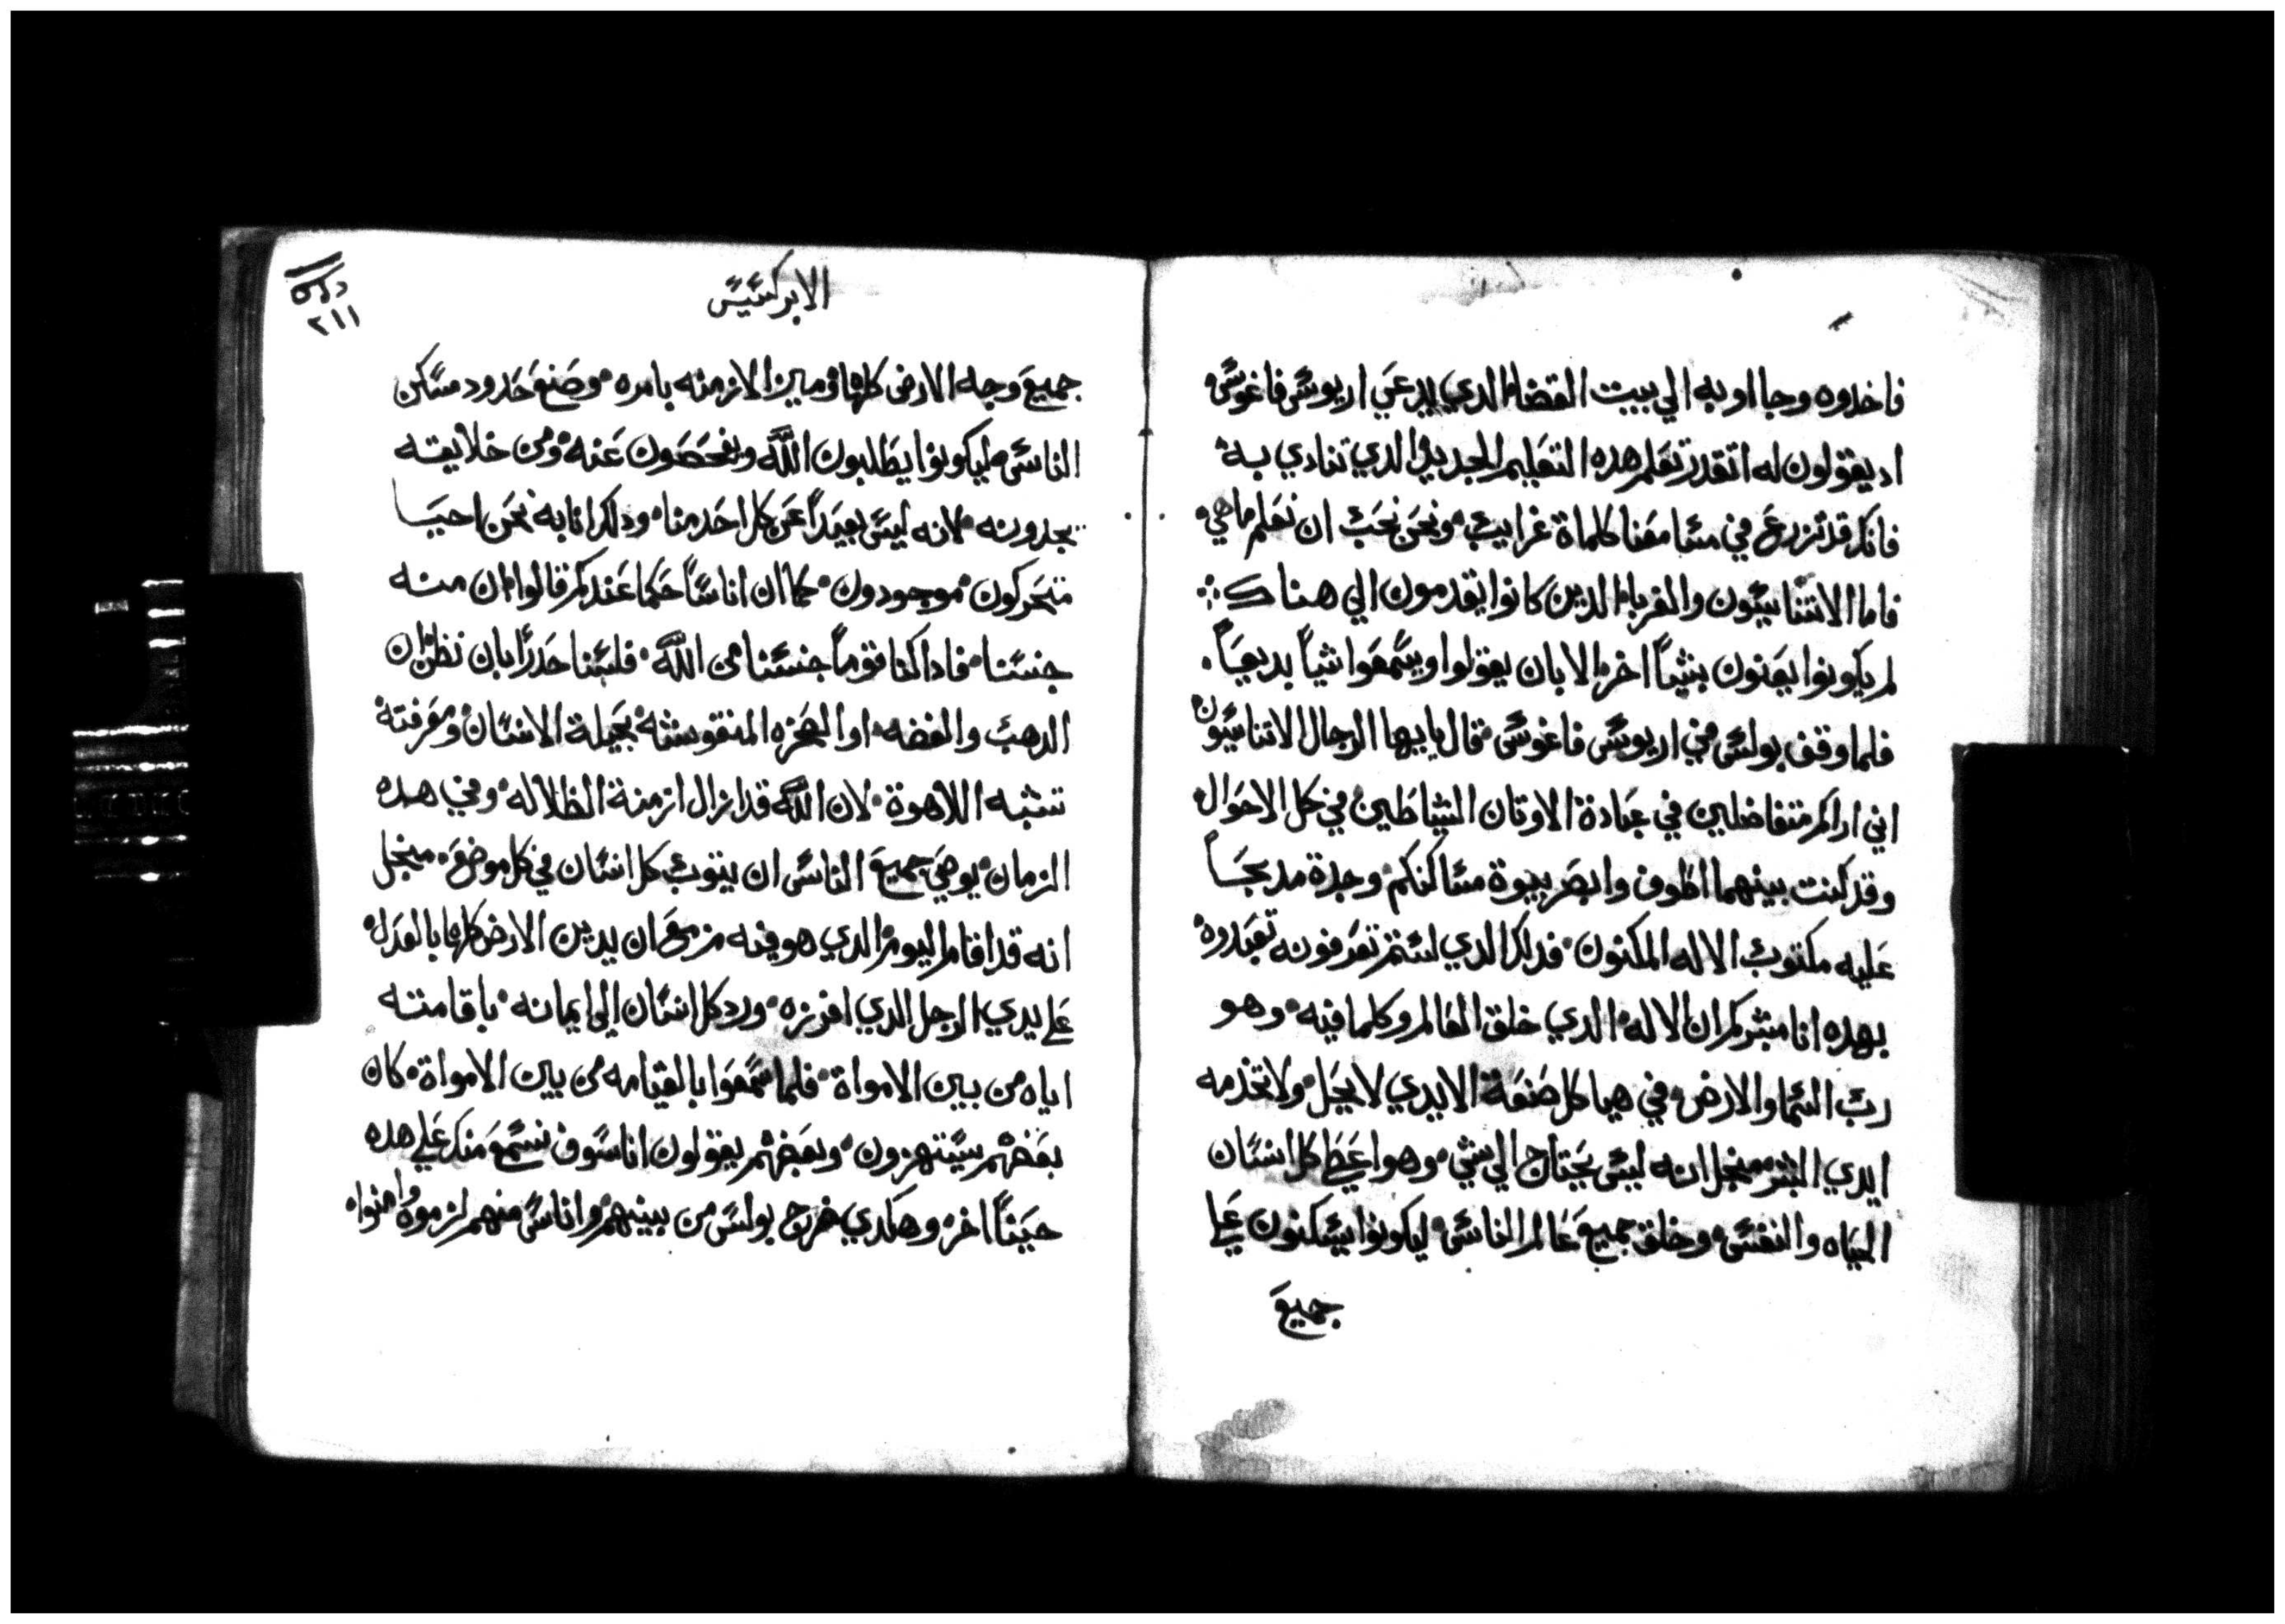 فاخدوه وجااو به الي بيت القضاء الدي يدعي اريوس فاغوس
اد يقولون له اتقدر تعلم هده التعليم الجديد الدي تنادي به
فانك قد تزرع في مسامعنا كلماة غرايب ونحن نحب ان نعلم ما هي
فاما الاتناسيون والغربا الدين كانوا يقدمون الي هناك
لم يكونوا يعنون بشياً اخر الا بان يقولوا ويسمعوا شياً بديعاً
فلما وقف بولس في اريوس فاغوس قال يايها الرجال الاتناسيون
اني اراكم متفاضلين في عبادة الاوتان الشياطين في كل الاحوال
وقد كنت بينهما اطوف وابصر بيوة مساكنكم وجدة مدبحاً
عليه مكتوب الاله المكنون فدلك الدي لستم تعرفونه تعبدوه
بهده انا مبشركم ان الاله الدي خلق العالم وكلما فيه وهو
رب السما والارض في هياكل صنعة الايدي لا يحل ولا تخدمه
ايدي البشر منجل انه ليس يحتاج الي شي وهو اعطا كل انسان
الحياه والنفس وخلق جميع عالم الناس ليكونوا يسكنون علي
جميع
الابركسيس
٢١١
جميع وجه الارض كلها وميز الازمنه بامره وصنع حدود مساكن
الناس ليكونوا يطلبون الله ويفحصون عنه ومن خلايقه
يجدونه لانه ليس بعيداً عن كل احد منا ودلك انا به نحن احيا
متحركون موجودون كما ان اناساً حكما عندكم قالوا ان منه
جنسنا فاداكنا قوماً جنسنا من الله فليسنا حدراً بان نظن ان
الدهب والفضه او الصخره المنقوشه بحيلة الانسان ومعرفته
تشبه اللاهوة لان الله قد ازال ازمنة الظلاله وفي هده
الزمان يوصي جميع الناس ان يتوب كل انسان في كل موضع منجل
انه قد اقام اليوم الدي هو فيه مزمع ان يدين الارض كلها بالعدل
علي يدي الرجل الدي افرزه ورد كل انسان الي ايمانه باقامته
اياه من بين الامواة فلما سمعوا بالقيامه من بين الامواة كان
بعضهم يستهزون وبعضهم يقولون انا سوف نسمع منك علي هده
حيناً اخر وهكدي خرج بولس من بينهم واناس منهم لزموه وامنوا